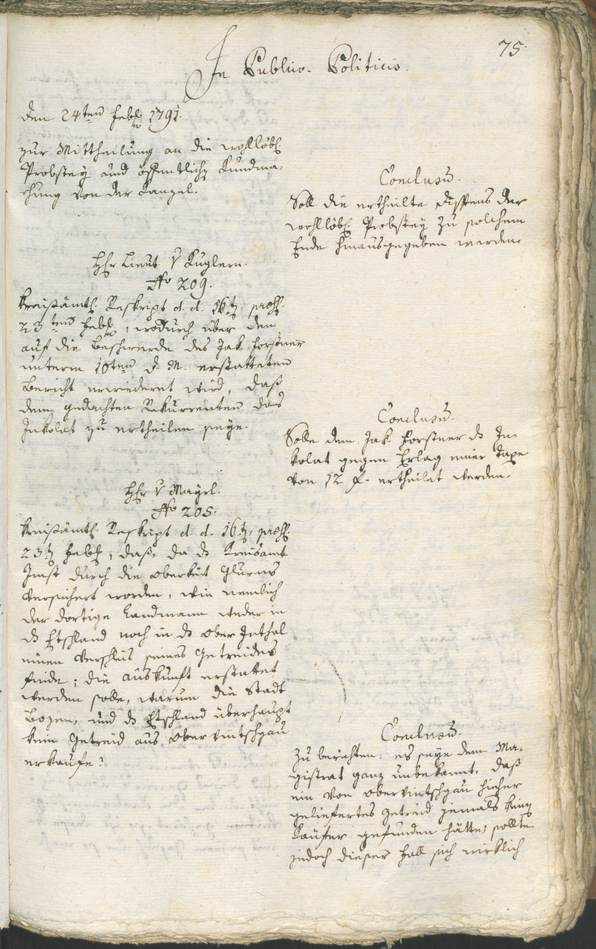 75.
In Publico-Politicis.
den 24ten Febr. 1791.
zur Mittheilung an die wohllöbl.
Probstey und öffentliche Kundma-
chung von der Kanzel.
Conclusum.
Soll die ertheilte Dispens der
wohllöbl. Probstey zu solchem
Ende hinausgegeben werden.
Hr Lieut. v Kuglern.
No 209.
Kreisämtl. Reskript d. d. 16t, præs.
23ten Febr., wodurch über den
auf die Beschwerde des Jak. Forstner
unterm 10ten d. M. erstatteten
Bericht erwiedert wird, daß
dem gedachten Rekurrenten das
Inkolat zu ertheilen seye.
Conclusum.
Solle dem Jak. Forstner ds In-
kolat gegen Erlag einer Taxe
von 12 f. ertheilet werden.
Hr v Mayrl.
No 205.
Kreisämtl. Reskript d. d. 16t, præs.
23t Febr., daß, da ds Kreisamt
Imst durch die Oberkeit Glurns
versichert worden, wie nemlich
der dortige Landmann weder in
ds Etschland noch in ds Ober Inthal
einen Verschlus seines Getreides
finde; die Auskunft erstattet
werden solle, warum die Stadt
Bozen, und ds Etschland überhaupt
kein Getreid aus Obervintschgau
erkaufe?
Conclusum.
Zu berichten: es seye dem Ma-
gistrat ganz unbekannt, daß
ein von Obervintschgau hieher
geliefertes Getreid jemals keine
Käufer gefunden hätte; sollte
jedoch dieser Fall sich wirklich